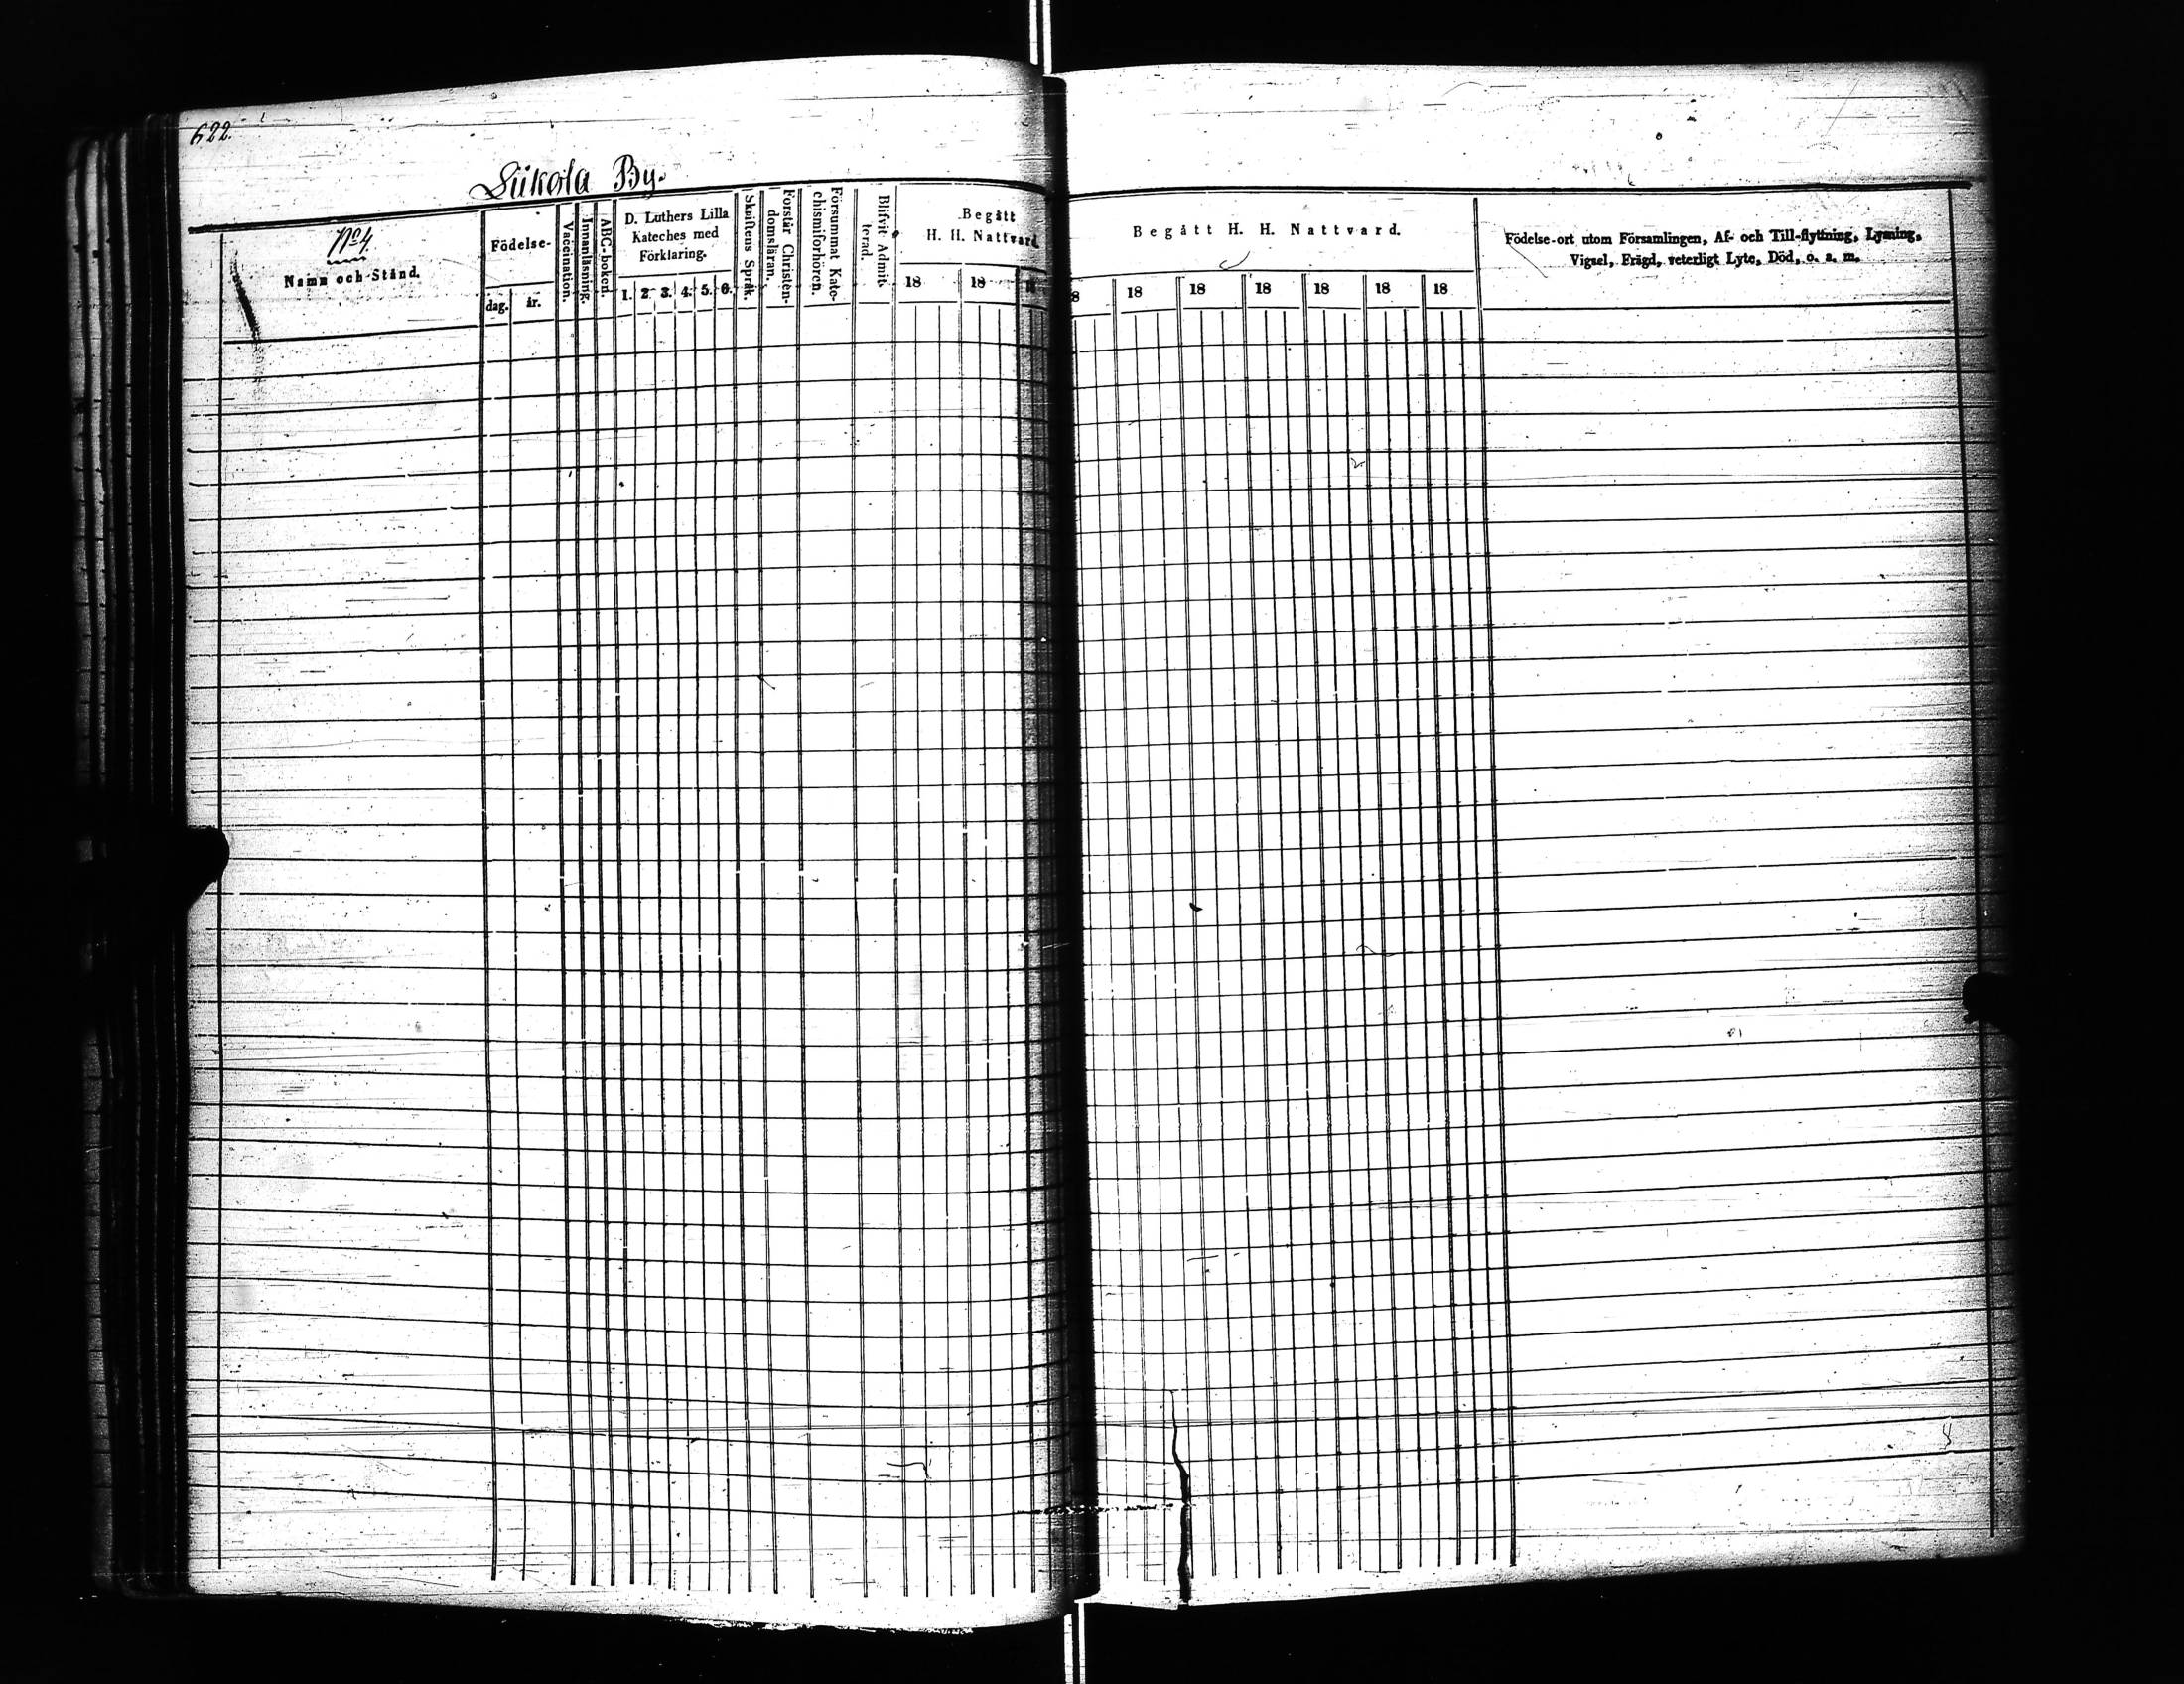 622.
Liikola By.
No 4.
Namn och Stånd.
Födelse-
dag. år.
Vaccination.
Innanläsning.
ABC-boken.
D. Luthers Lilla
Kateches med
Förklaring.
1. 2. 3. 4. 5. 6.
Skriftens Språk.
Förstår Christen-
domsläran.
Försummat Kate-
chismiförhören.
Blifvit Admit-
terad.
Begått
H. H. Nattvard.
18 18 18
Begått H. H. Nattvard.
8 18 18 18 18 18 18
Födelse-ort utom Församlingen, Af- och Till-flyttning, Lysning,
Vigsel, Frägd, veterligt Lyte, Död, o. s. m.